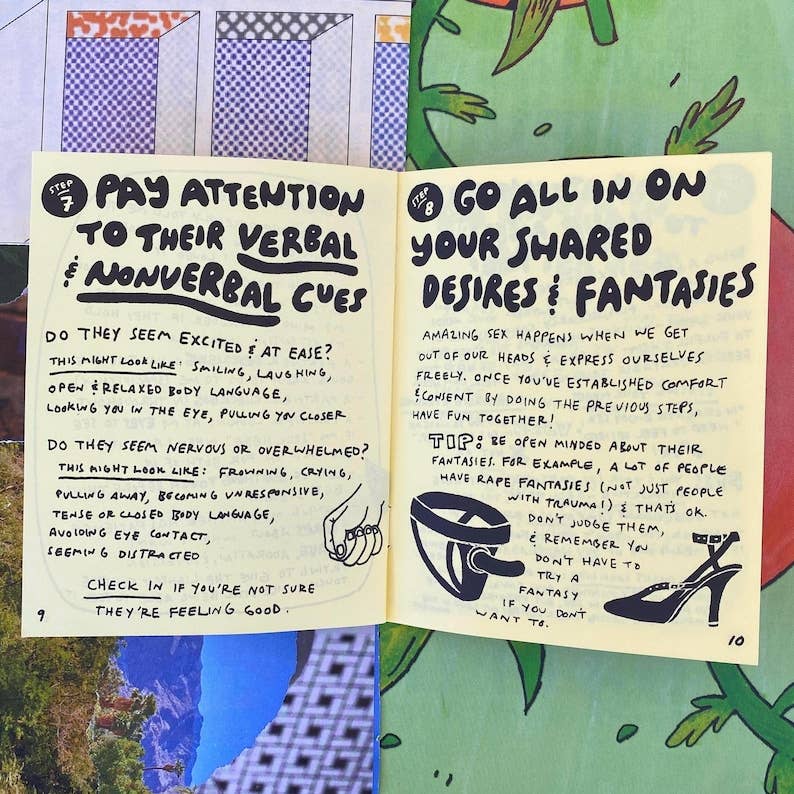 STEP 7 PAY ATTENTION
TO THEIR VERBAL
& NONVERBAL CUES
DO THEY SEEM EXCITED & AT EASE?
THIS MIGHT LOOK LIKE: SMILING, LAUGHING,
OPEN & RELAXED BODY LANGUAGE,
LOOKING YOU IN THE EYE, PULLING YOU CLOSER
DO THEY SEEM NERVOUS OR OVERWHELMED?
THIS MIGHT LOOK LIKE: FROWNING, CRYING,
PULLING AWAY, BECOMING UNRESPONSIVE,
TENSE OR CLOSED BODY LANGUAGE,
AVOIDING EYE CONTACT,
SEEMING DISTRACTED
CHECK IN IF YOU'RE NOT SURE
THEY'RE FEELING GOOD.
9
STEP 8 GO ALL IN ON
YOUR SHARED
DESIRES & FANTASIES
AMAZING SEX HAPPENS WHEN WE GET
OUT OF OUR HEADS & EXPRESS OURSELVES
FREELY. ONCE YOU'VE ESTABLISHED COMFORT
& CONSENT BY DOING THE PREVIOUS STEPS,
HAVE FUN TOGETHER!
TIP: BE OPEN MINDED ABOUT THEIR
FANTASIES. FOR EXAMPLE, A LOT OF PEOPLE
HAVE RAPE FANTASIES (NOT JUST PEOPLE
WITH TRAUMA!) & THAT'S OK.
DON'T JUDGE THEM,
& REMEMBER YOU
DON'T HAVE TO
TRY A
FANTASY
IF YOU DON'T
WANT TO.
10